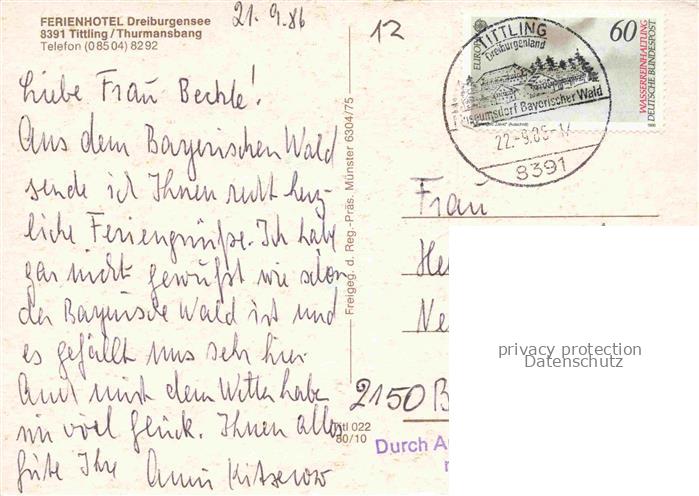 FERIENHOTEL Dreiburgensee
8391 Tittling / Thurmansbang
Telefon (0 85 04) 82 92
21.9.86
12
Liebe Frau Bechle!
Aus dem Bayerischen Wald
sende ich Ihnen recht herz-
liche Feriengrüße. Ich habe
gar nicht gewußt wie schön
der Bayerische Wald ist und
es gefällt uns sehr hier.
Auch mit dem Wetter haben
wir viel Glück. Ihnen alles
gute Ihre Anni Kitzerow
Freigeg. d. Reg.-Präs. Münster 6304/75
Titl 022
80/10
EUROPA
60
WASSERREINHALTUNG
DEUTSCHE BUNDESPOST
TITTLING
Dreiburgenland
Museumsdorf Bayerischer Wald
22.-9.86-
8391
Frau
He
Ne
2150 B
Durch A
privacy protection
Datenschutz